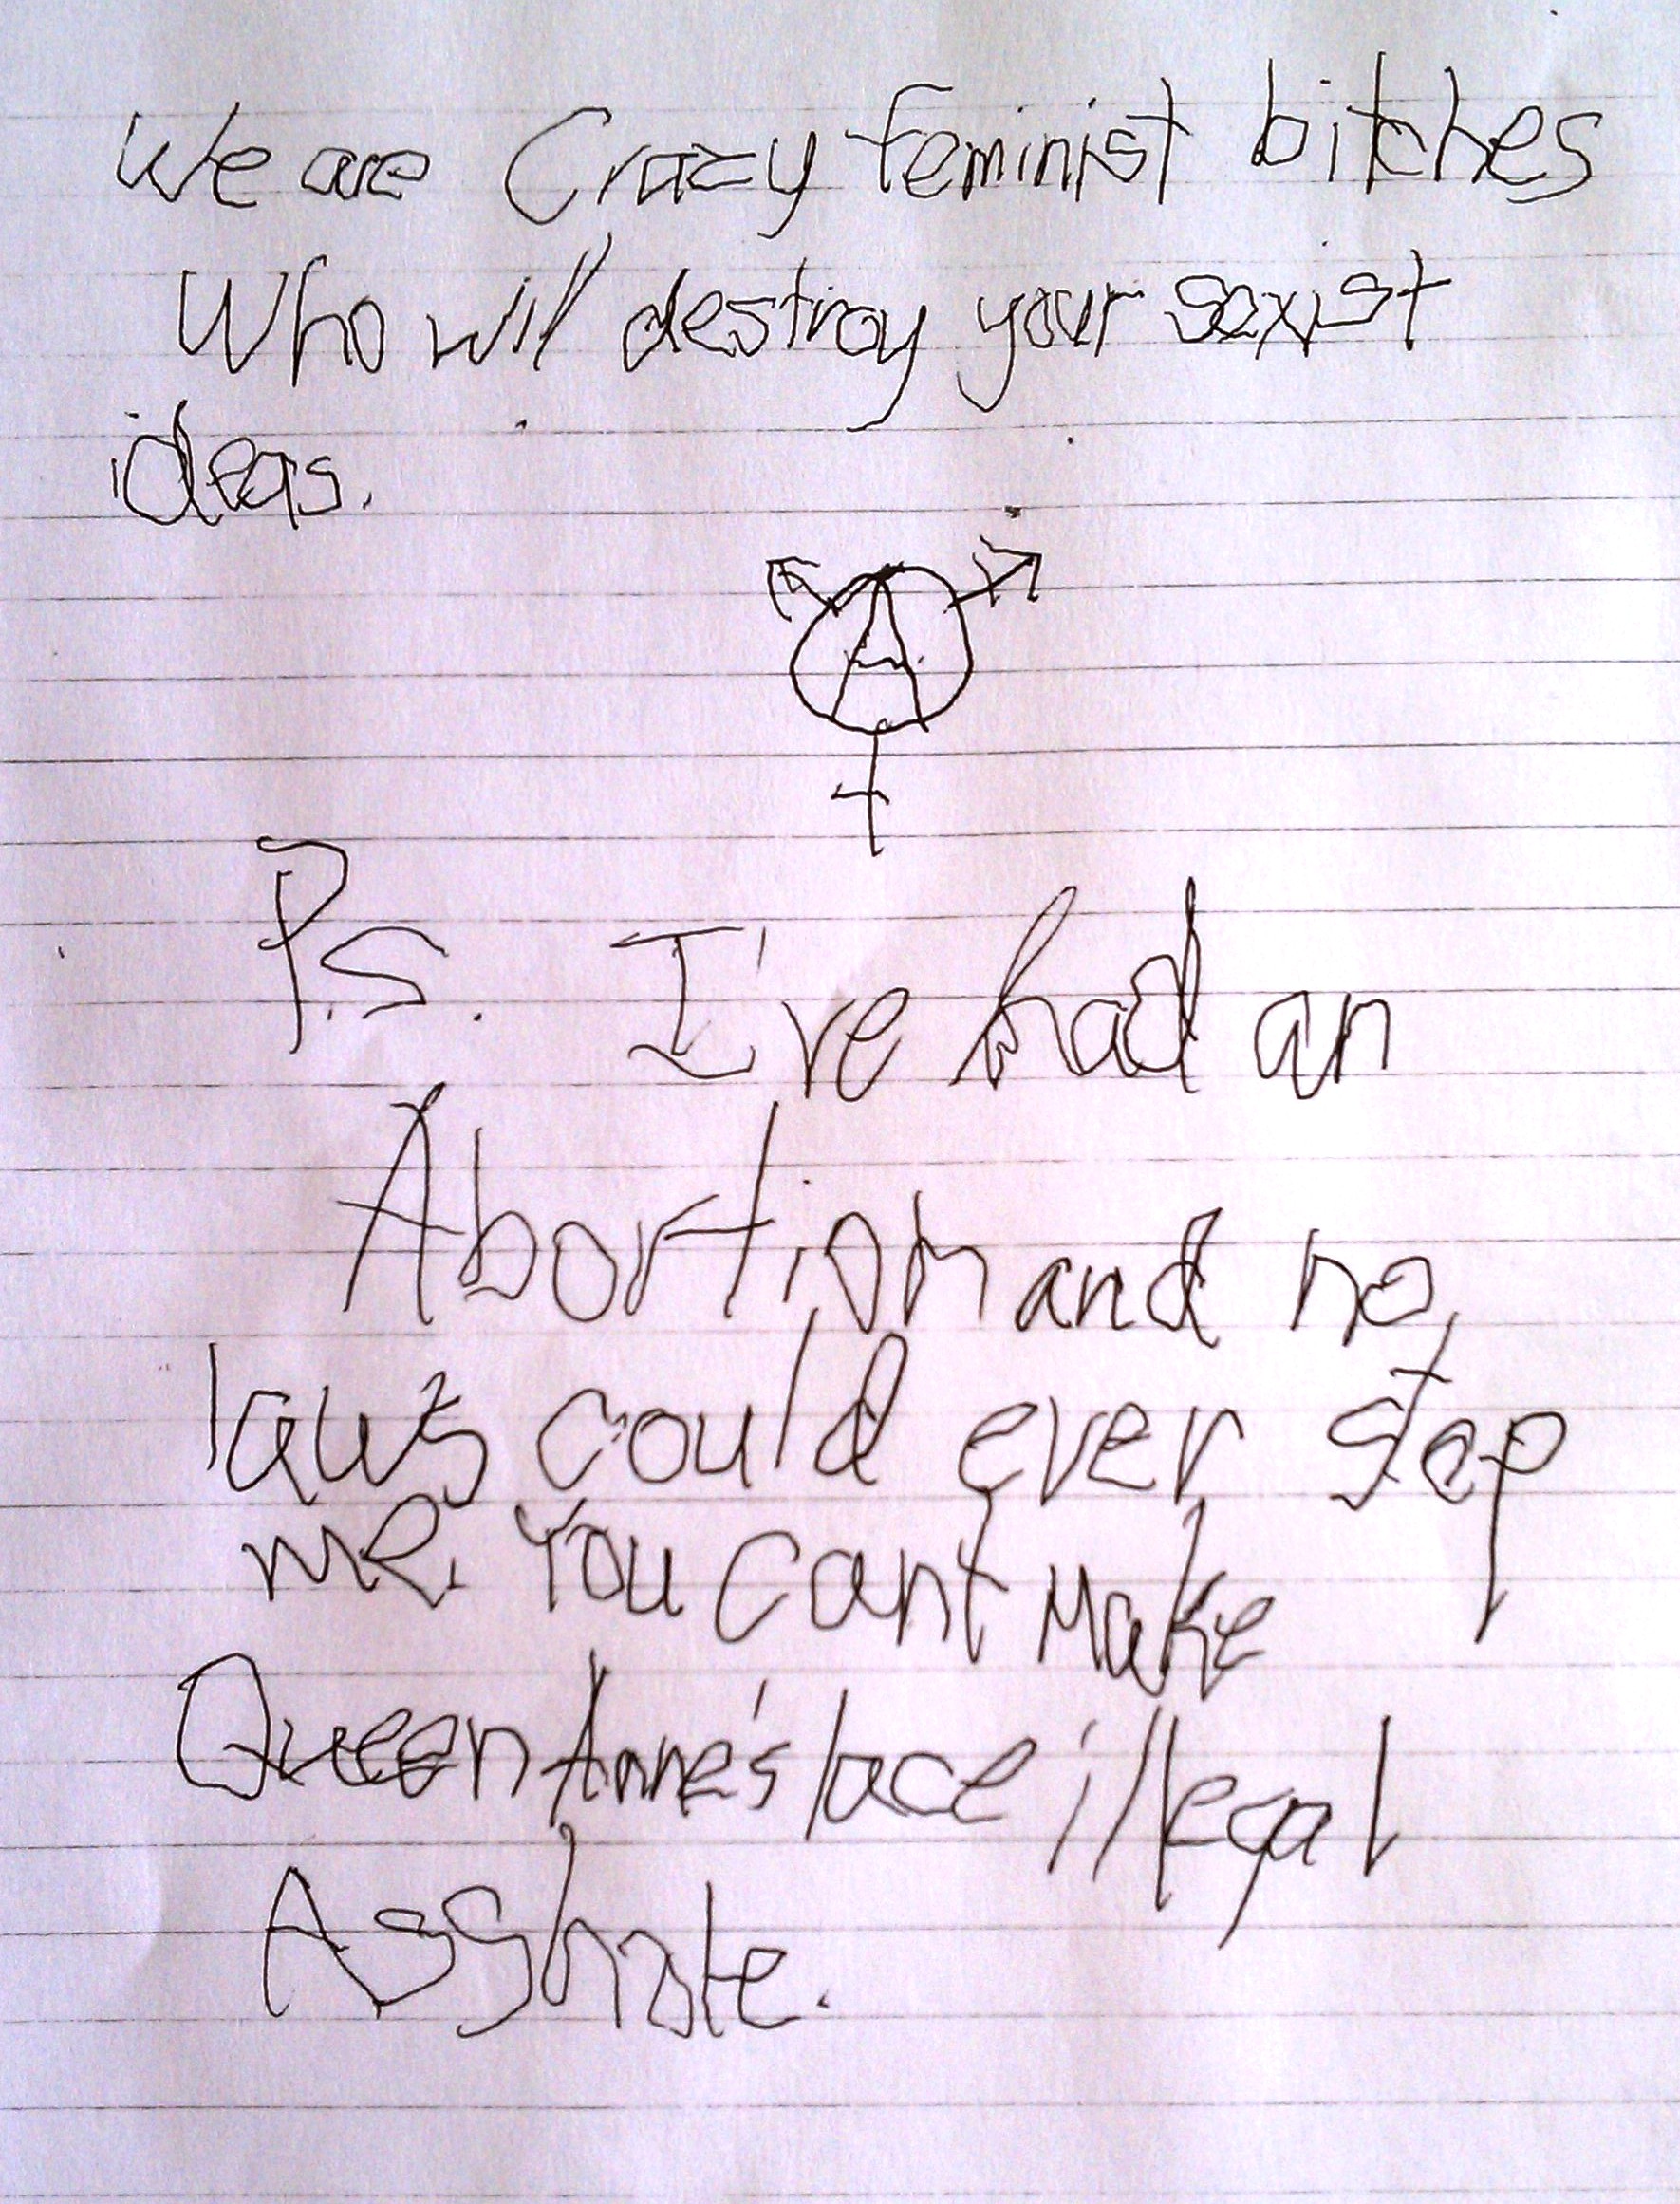 We are Crazy feminist bitches
Who will destroy your sexist
ideas.
A
P.S. I've had an
Abortion and no
laws could ever stop
me. You cant Make
Queen Anne's lace illegal
Asshole.